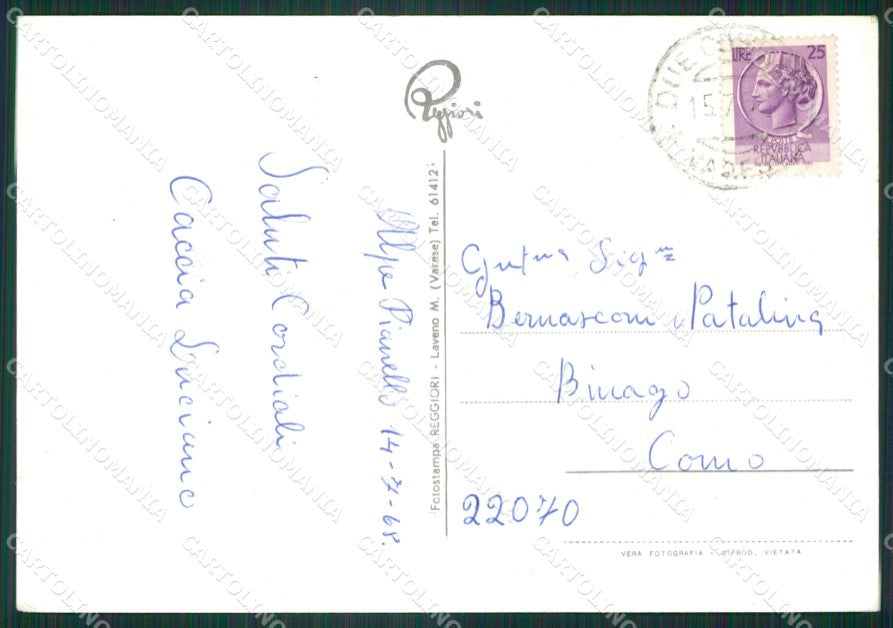 Reggiori
LIRE 25
POSTE
REPVBBLICA
ITALIANA
DUE
15.7
VARESE
Alpe Pianello 14-7-68.
Saluti Cordiali
Caccia Luciano
Fotostampa REGGIORI - Laveno M. (Varese) Tel. 61412
Sig.na
Bernasconi Patalina
Binago
Como
22070
VERA FOTOGRAFIA - RIPROD. VIETATA
CARTOLINOMANIA